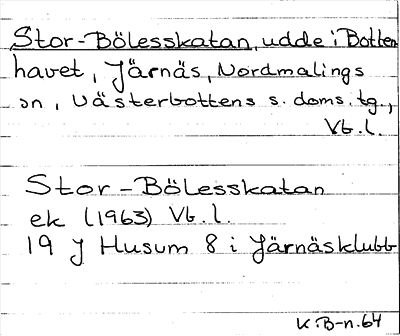 Stor-Bölesskatan, udde i Botten
havet, Järnäs, Nordmalings
sn, Västerbottens s. doms. tg.,
Vb. l.
Stor-Bölesskatan
ek (1963) Vb. l.
19 J Husum 8 i Järnäsklubb
K:B-n.64